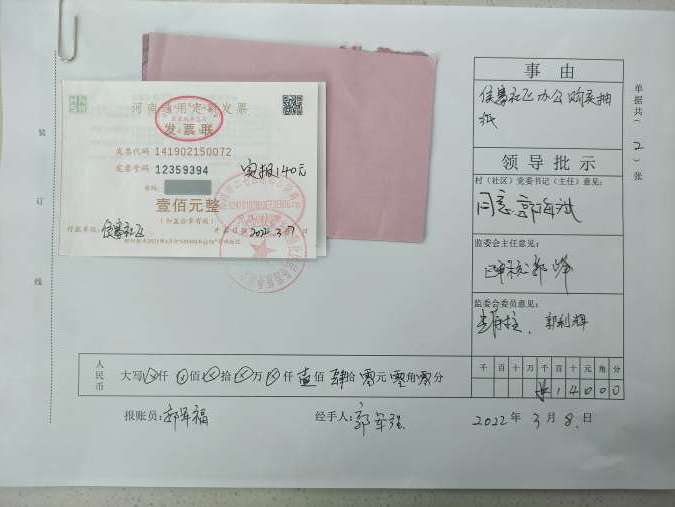 河南省通用定额发票
发票联
发票代码 141902150072
发票号码 12359394
实报140元
密码:
壹佰元整
付款单位: 侯寨社区
开票日期 2022.3.7
事由
侯寨社区办公购买抽
纸
单据共(2)张
领导批示
村（社区）党委书记（主任）意见：
同意 郭海斌
监委会主任意见：
监委会委员意见：
郭利辉
装
订
线
人民币
大写 仟 佰 拾 万 仟 壹佰 肆拾 零元 零角 零分
千百十万千百十元角分
14000
报账员: 郭军福
经手人: 郭军强
2022年3月8日